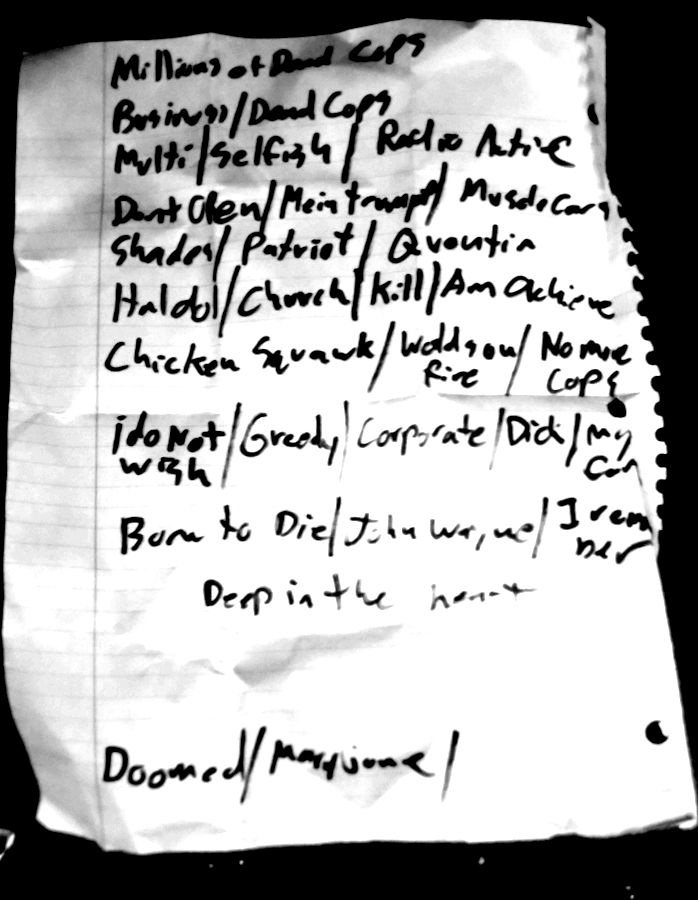 Millions of Dead Cops
Business/Dead Cops
Multi/Selfish/Radio Active
Dont Olen/Mein trumpf/Muscle Cars
Shades/Patriot/Quentin
Haldol/Church/Kill/Am achieve
Chicken Squawk/World's on/No more
fire Cops
i do Not/Greedy/Corporate/Dick/my
wish Car
Born to Die/John Wayne/I rem
ber
Deep in the heart
Doomed/Maryjuane/